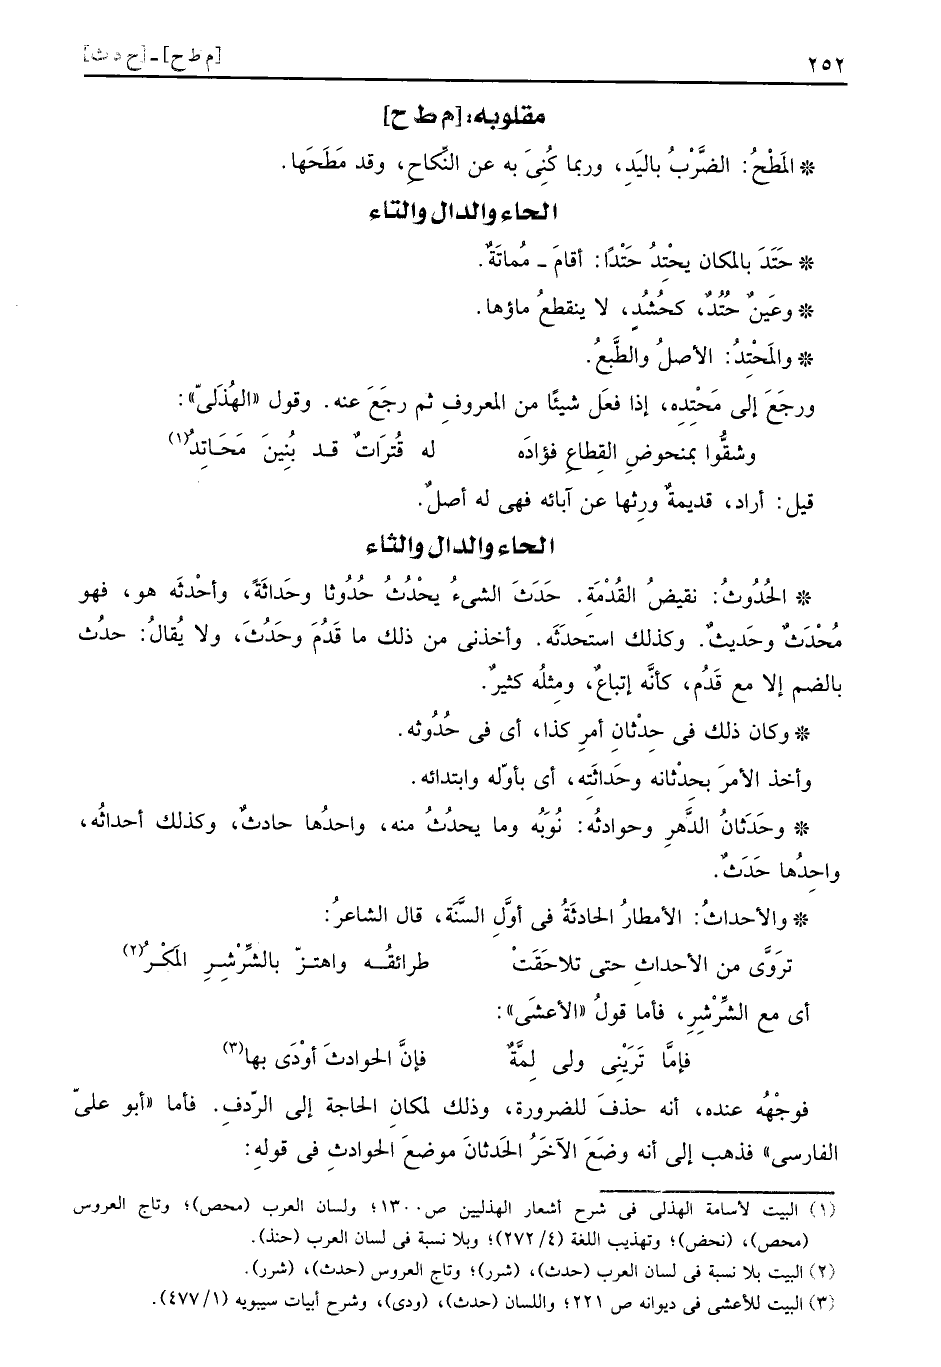 ٢٥٢ [م ط ح] ـ [ح د ث]
مقلوبه: [م ط ح]
* المَطْحُ: الضَّرْبُ باليَدِ، وربما كُنِىَ به عن النِّكاحِ، وقد مَطَحَها.
الحاء والدال والتاء
* حَتَدَ بالمكان يحْتِدُ حَتْدًا: أقامَ ـ مُماتَةٌ.
* وعَينٌ حُتُدٌ، كحُشُدٍ، لا ينقطعُ ماؤها.
* والمَحْتِدُ: الأصلُ والطَّبعُ.
ورجَعَ إلى مَحْتِدِه، إذا فعَل شيئًا من المعروفِ ثم رجَعَ عنه. وقول «الهُذَلىّ»:
وشقُّوا بمنحوضِ القِطاعِ فؤادَه له قُتَراتٌ قد بُنِينَ مَحَاتِدُ(١)
قيل: أراد، قديمةٌ ورِثها عن آبائه فهى له أصلٌ.
الحاء والدال والثاء
* الحُدُوثُ: نقيضُ القُدْمَةِ. حَدَثَ الشىءُ يحْدُثُ حُدُوثا وحَداثَةً، وأحْدثَه هو، فهو
مُحْدَثٌ وحَديثٌ. وكذلك استحدَثَه. وأخذنى من ذلك ما قَدُمَ وحَدُثَ، ولا يُقالُ: حدُث
بالضم إلا مع قَدُم، كأنَّه إتباعٌ، ومثلُه كثيرٌ.
* وكان ذلك فى حِدْثانِ أمرِ كذا، أى فى حُدُوثه.
وأخذ الأمرَ بحِدْثانه وحَداثَتِه، أى بأوّله وابتدائه.
* وحَدَثانُ الدَّهرِ وحوادثُه: نُوَبُه وما يحدُثُ منه، واحدُها حادثٌ، وكذلك أحداثُه،
واحِدُها حَدَثٌ.
* والأحداثُ: الأمطارُ الحادثَةُ فى أوَّلِ السَّنَة، قال الشاعرُ:
تروَّى من الأحداثِ حتى تلاحَقَتْ طرائقُـه واهتـزّ بالشِّرْشِرِ المَكْـرُ(٢)
أى مع الشِّرْشِرِ، فأما قولُ «الأعشَى»:
فإمَّا تَرَيْنِى ولى لِمَّةٌ فإنَّ الحوادثَ أوْدَى بها(٣)
فوجْهُه عنده، أنه حذفَ للضرورة، وذلك لمكانِ الحاجة إلى الرّدفِ. فأما «أبو علىّ
الفارسى» فذهب إلى أنه وضَعَ الآخَرُ الحَدثانَ موضعَ الحوادثِ فى قولِه:
(١) البيت لأسامة الهذلى فى شرح أشعار الهذليين ص١٣٠٠؛ ولسان العرب (محص)؛ وتاج العروس
(محص)، (نحض)؛ وتهذيب اللغة (٤/ ٢٧٢)؛ وبلا نسبة فى لسان العرب (حنذ).
(٢) البيت بلا نسبة فى لسان العرب (حدث)، (شرر)؛ وتاج العروس (حدث)، (شرر).
(٣) البيت للأعشى فى ديوانه ص ٢٢١؛ واللسان (حدث)، (ودى)، وشرح أبيات سيبويه (١/ ٤٧٧).